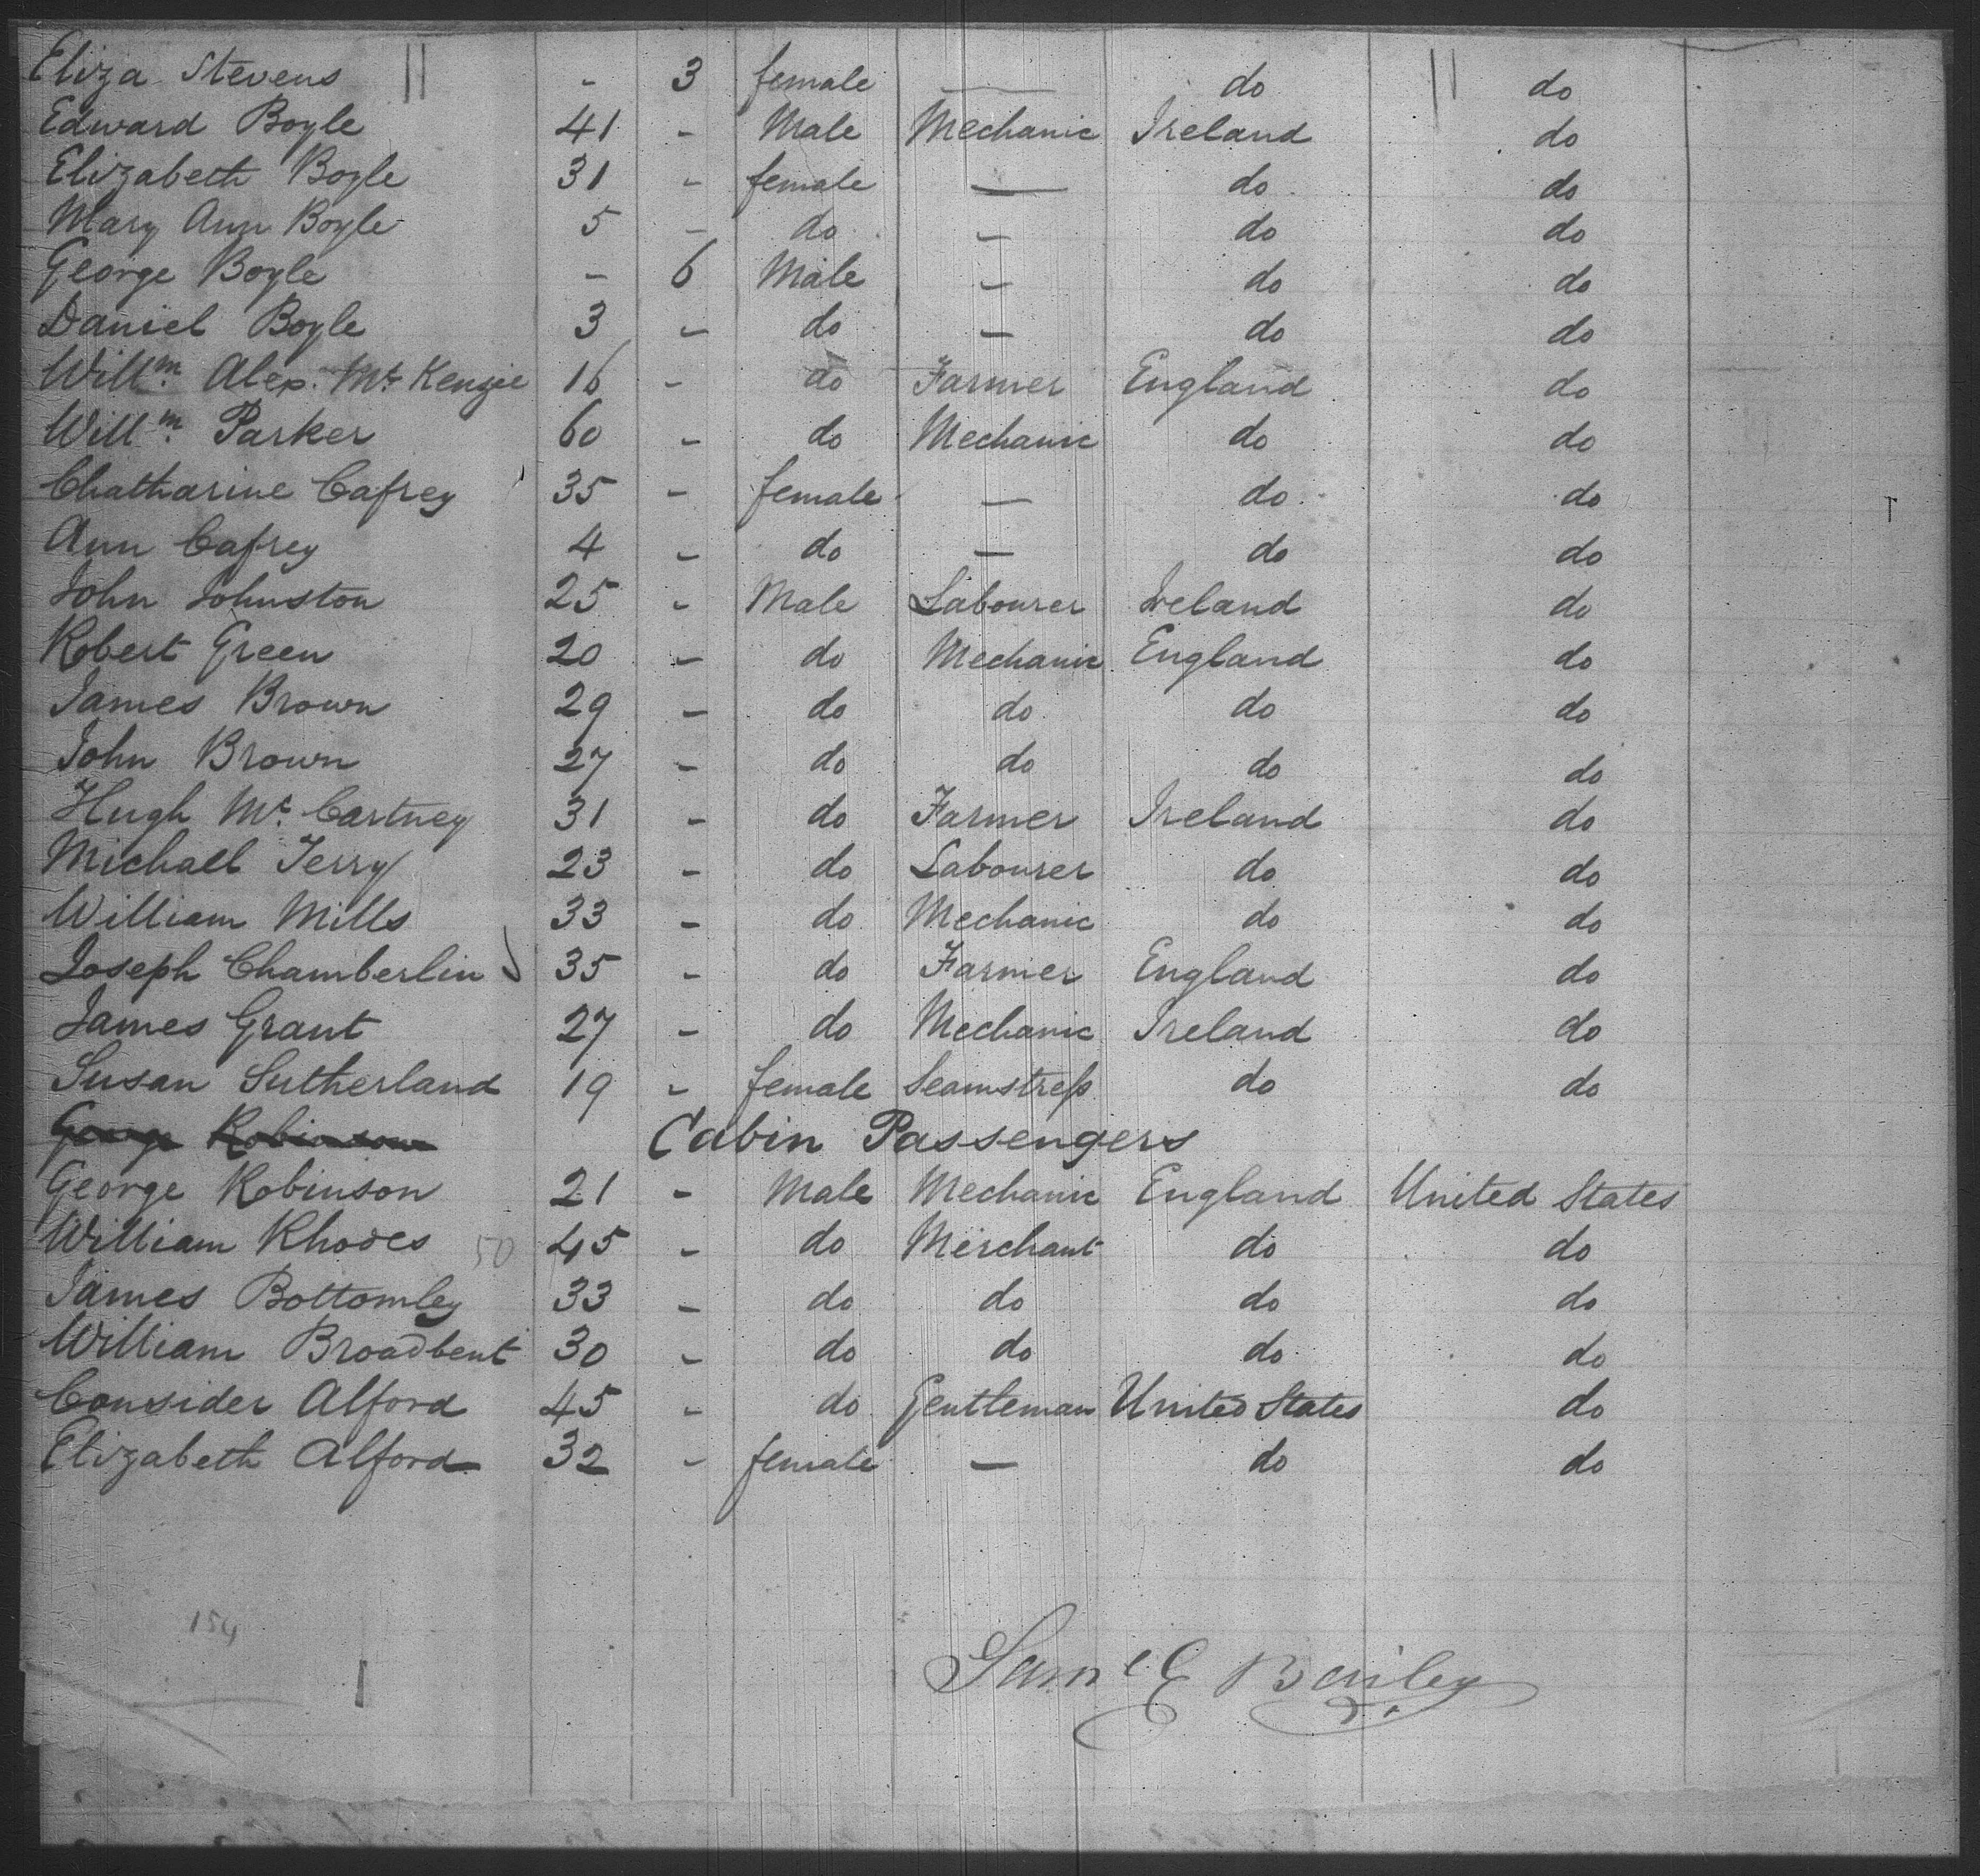 Eliza Stevens - 3 female — do do
Edward Boyle 41 - Male Mechanic Ireland do
Elizabeth Boyle 31 - female — do do
Mary Ann Boyle 5 - do - do do
George Boyle - 6 Male - do do
Daniel Boyle 3 - do - do do
Willm. Alex. Mc Kenzie 16 - do Farmer England do
Willm. Parker 60 - do Mechanic do do
Chatharine Cafrey 35 - female — do do
Ann Cafrey 4 - do — do do
John Johnston 25 - Male Labourer Ireland do
Robert Green 20 - do Mechanic England do
James Brown 29 - do do do do
John Brown 27 - do do do do
Hugh Mc. Cartney 31 - do Farmer Ireland do
Michael Terry 23 - do Labourer do do
William Mills 33 - do Mechanic do do
Joseph Chamberlin 35 - do Farmer England do
James Grant 27 - do Mechanic Ireland do
Susan Sutherland 19 - female Seamstress do do
George Robinson Cabin Passengers
George Robinson 21 - Male Mechanic England United States
William Rhodes 50 45 - do Merchant do do
James Bottomley 33 - do do do do
William Broadbent 30 - do do do do
Consider Alford 45 - do Gentleman United States do
Elizabeth Alford 32 - female — do do
154
Saml E Bailey